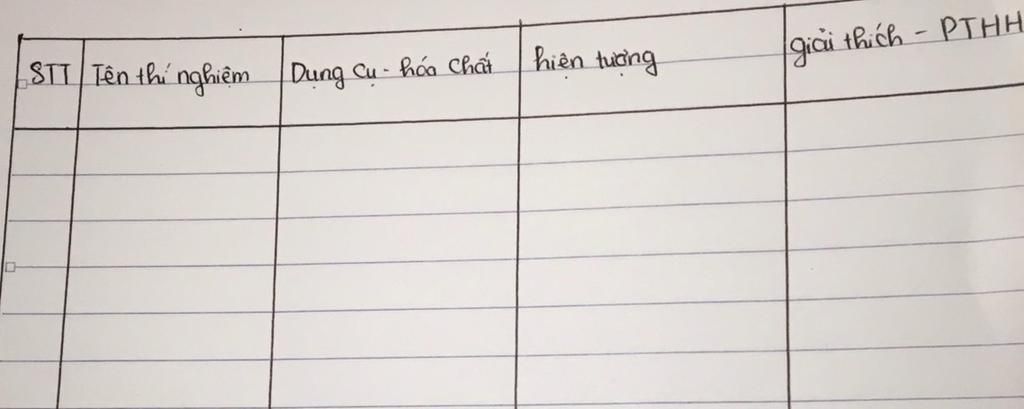 STT
Tên thí nghiệm
Dụng cụ - hóa chất
hiện tượng
giải thích - PTHH